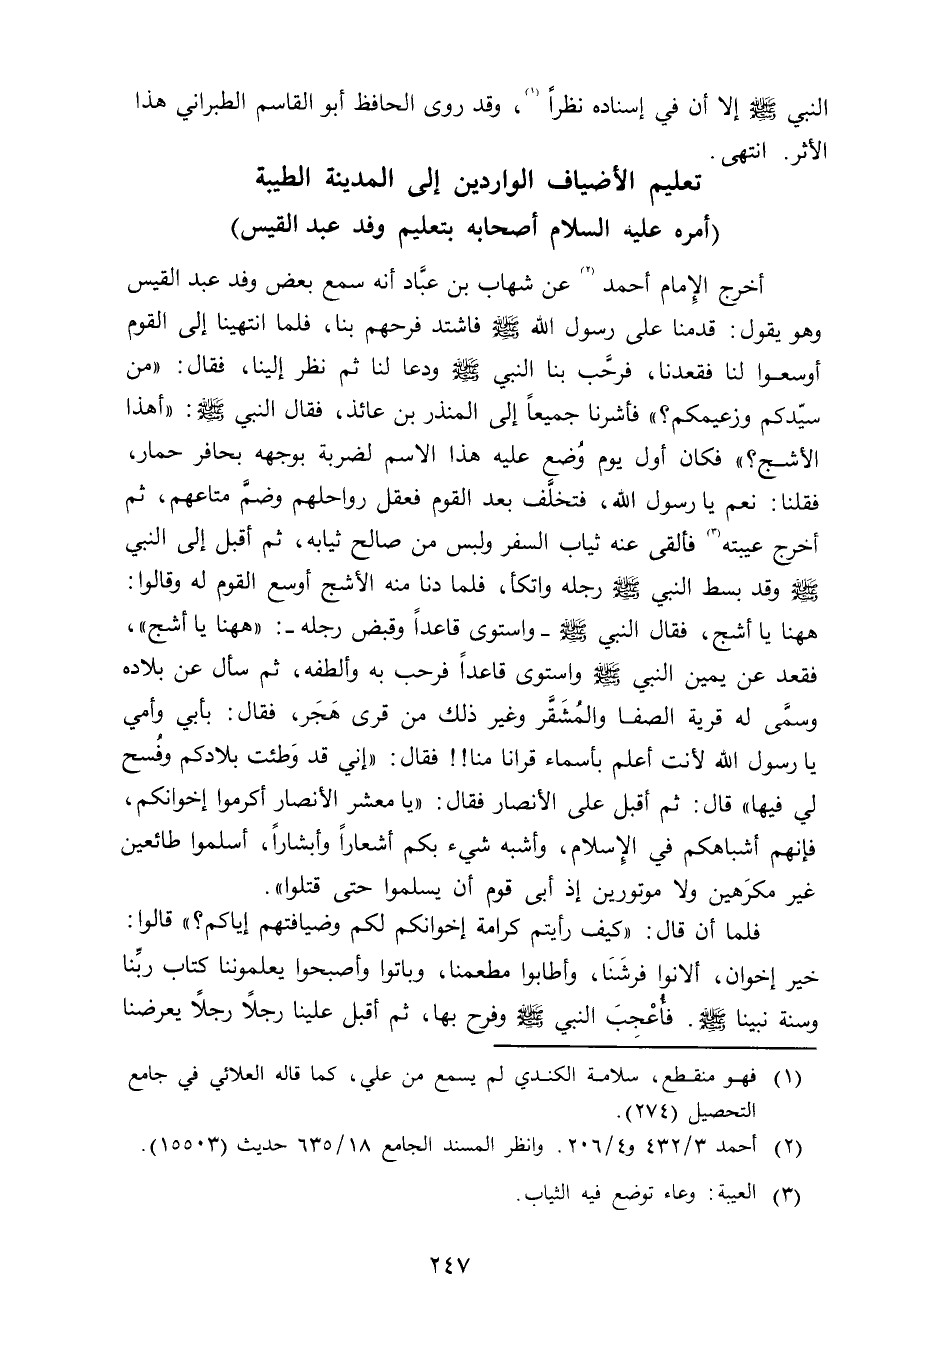 النبي ﷺ إلا أن في إسناده نظراً (١)، وقد روى الحافظ أبو القاسم الطبراني هذا
الأثر. انتهى.
تعليم الأضياف الواردين إلى المدينة الطيبة
(أمره عليه السلام أصحابه بتعليم وفد عبد القيس)
أخرج الإمام أحمد (٢) عن شهاب بن عبَّاد أنه سمع بعض وفد عبد القيس
وهو يقول: قدمنا على رسول الله ﷺ فاشتد فرحهم بنا، فلما انتهينا إلى القوم
أوسعوا لنا فقعدنا، فرحَّب بنا النبي ﷺ ودعا لنا ثم نظر إلينا، فقال: «من
سيّدكم وزعيمكم؟» فأشرنا جميعاً إلى المنذر بن عائذ، فقال النبي ﷺ: «أهذا
الأشج؟» فكان أول يوم وُضع عليه هذا الاسم لضربة بوجهه بحافر حمار،
فقلنا: نعم يا رسول الله، فتخلَّف بعد القوم فعقل رواحلهم وضمَّ متاعهم، ثم
أخرج عيبته (٣) فألقى عنه ثياب السفر ولبس من صالح ثيابه، ثم أقبل إلى النبي
ﷺ وقد بسط النبي ﷺ رجله واتكأ، فلما دنا منه الأشج أوسع القوم له وقالوا:
ههنا يا أشج، فقال النبي ﷺ ـ واستوى قاعداً وقبض رجله ـ: «ههنا يا أشج»،
فقعد عن يمين النبي ﷺ واستوى قاعداً فرحب به وألطفه، ثم سأل عن بلاده
وسمَّى له قرية الصفا والمُشَقَّر وغير ذلك من قرى هَجَر، فقال: بأبي وأمي
يا رسول الله لأنت أعلم بأسماء قرانا منا!! فقال: «إني قد وَطئت بلادكم وفُسح
لي فيها» قال: ثم أقبل على الأنصار فقال: «يا معشر الأنصار أكرموا إخوانكم،
فإنهم أشباهكم في الإسلام، وأشبه شيء بكم أشعاراً وأبشاراً، أسلموا طائعين
غير مكرَهين ولا موتورين إذ أبى قوم أن يسلموا حتى قتلوا».
فلما أن قال: «كيف رأيتم كرامة إخوانكم لكم وضيافتهم إياكم؟» قالوا:
خير إخوان، ألانوا فرشَنَا، وأطابوا مطعمنا، وباتوا وأصبحوا يعلموننا كتاب ربِّنا
وسنة نبينا ﷺ. فأُعْجِبَ النبي ﷺ وفرح بها، ثم أقبل علينا رجلًا رجلًا يعرضنا
(١) فهو منقطع، سلامة الكندي لم يسمع من علي، كما قاله العلائي في جامع
التحصيل (٢٧٤).
(٢) أحمد ٤٣٢/٣ و٢٠٦/٤. وانظر المسند الجامع ٦٣٥/١٨ حديث (١٥٥٠٣).
(٣) العيبة: وعاء توضع فيه الثياب.
٢٤٧